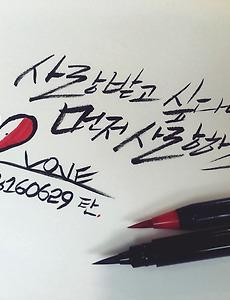 사랑받고 싶다
먼저 사랑하
VONE
160629 탄.